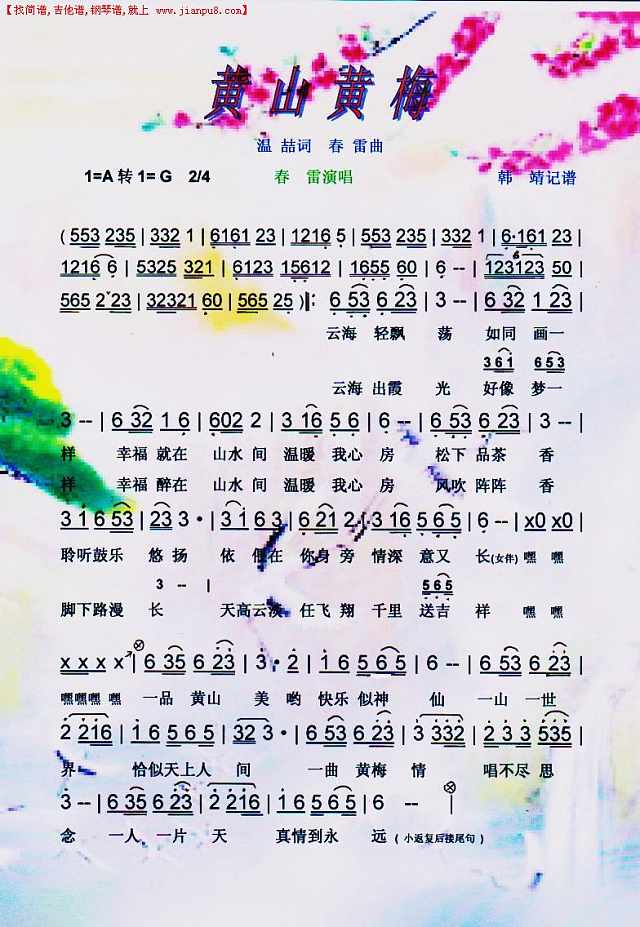 【找简谱,吉他谱,钢琴谱,就上 www.jianpu8.com】
黄山黄梅
温 喆词 春 雷曲
1=A 转 1= G 2/4 春 雷演唱 韩 靖记谱
( 553 235 | 332 1 | 6161 23 | 1216 5 | 553 235 | 332 1 | 6·161 23 |
1216 6 | 5325 321 | 6123 15612 | 1655 60 | 6 -- | 123123 50 |
565 2 23 | 32321 60 | 565 25 ) ‖: 6 53 6 23 | 3 -- | 6 32 1 23 |
云海 轻飘 荡 如同 画一
361 653
云海 出霞 光 好像 梦一
3 -- | 6 32 1 6 | 602 2 | 3 16 5 6 | 6 -- | 6 53 6 23 | 3 -- |
样 幸福 就在 山水 间 温暖 我心 房 松下 品茶 香
样 幸福 醉在 山水 间 温暖 我心 房 风吹 阵阵 香
3 1 6 53 | 23 3 · | 3 1 6 3 | 6 21 2 · | 3 16 5 6 5 | 6 -- | x0 x0 |
聆听鼓乐 悠扬 依偎在 你身 旁 情深 意又 长(女伴) 嘿 嘿
3 -- | 565
脚下路漫 长 天高云淡 任飞 翔 千里 送吉 祥 嘿 嘿
x x x x | 6 35 6 23 | 3 · 2 | 1 6 5 6 5 | 6 -- | 6 53 6 23 |
嘿嘿嘿 嘿 一品 黄山 美 哟 快乐 似神 仙 一山 一世
2 216 | 1 6 5 6 5 | 32 3 · | 6 53 6 23 | 2 216 | 2 3 2 535 |
界 恰似天上人 间 一曲 黄梅 情 唱不尽 思
3 -- | 6 35 6 23 | 2 216 | 1 6 5 6 5 | 6 -- |
念 一人 一片 天 真情到永 远 ( 小返复后接尾句 )